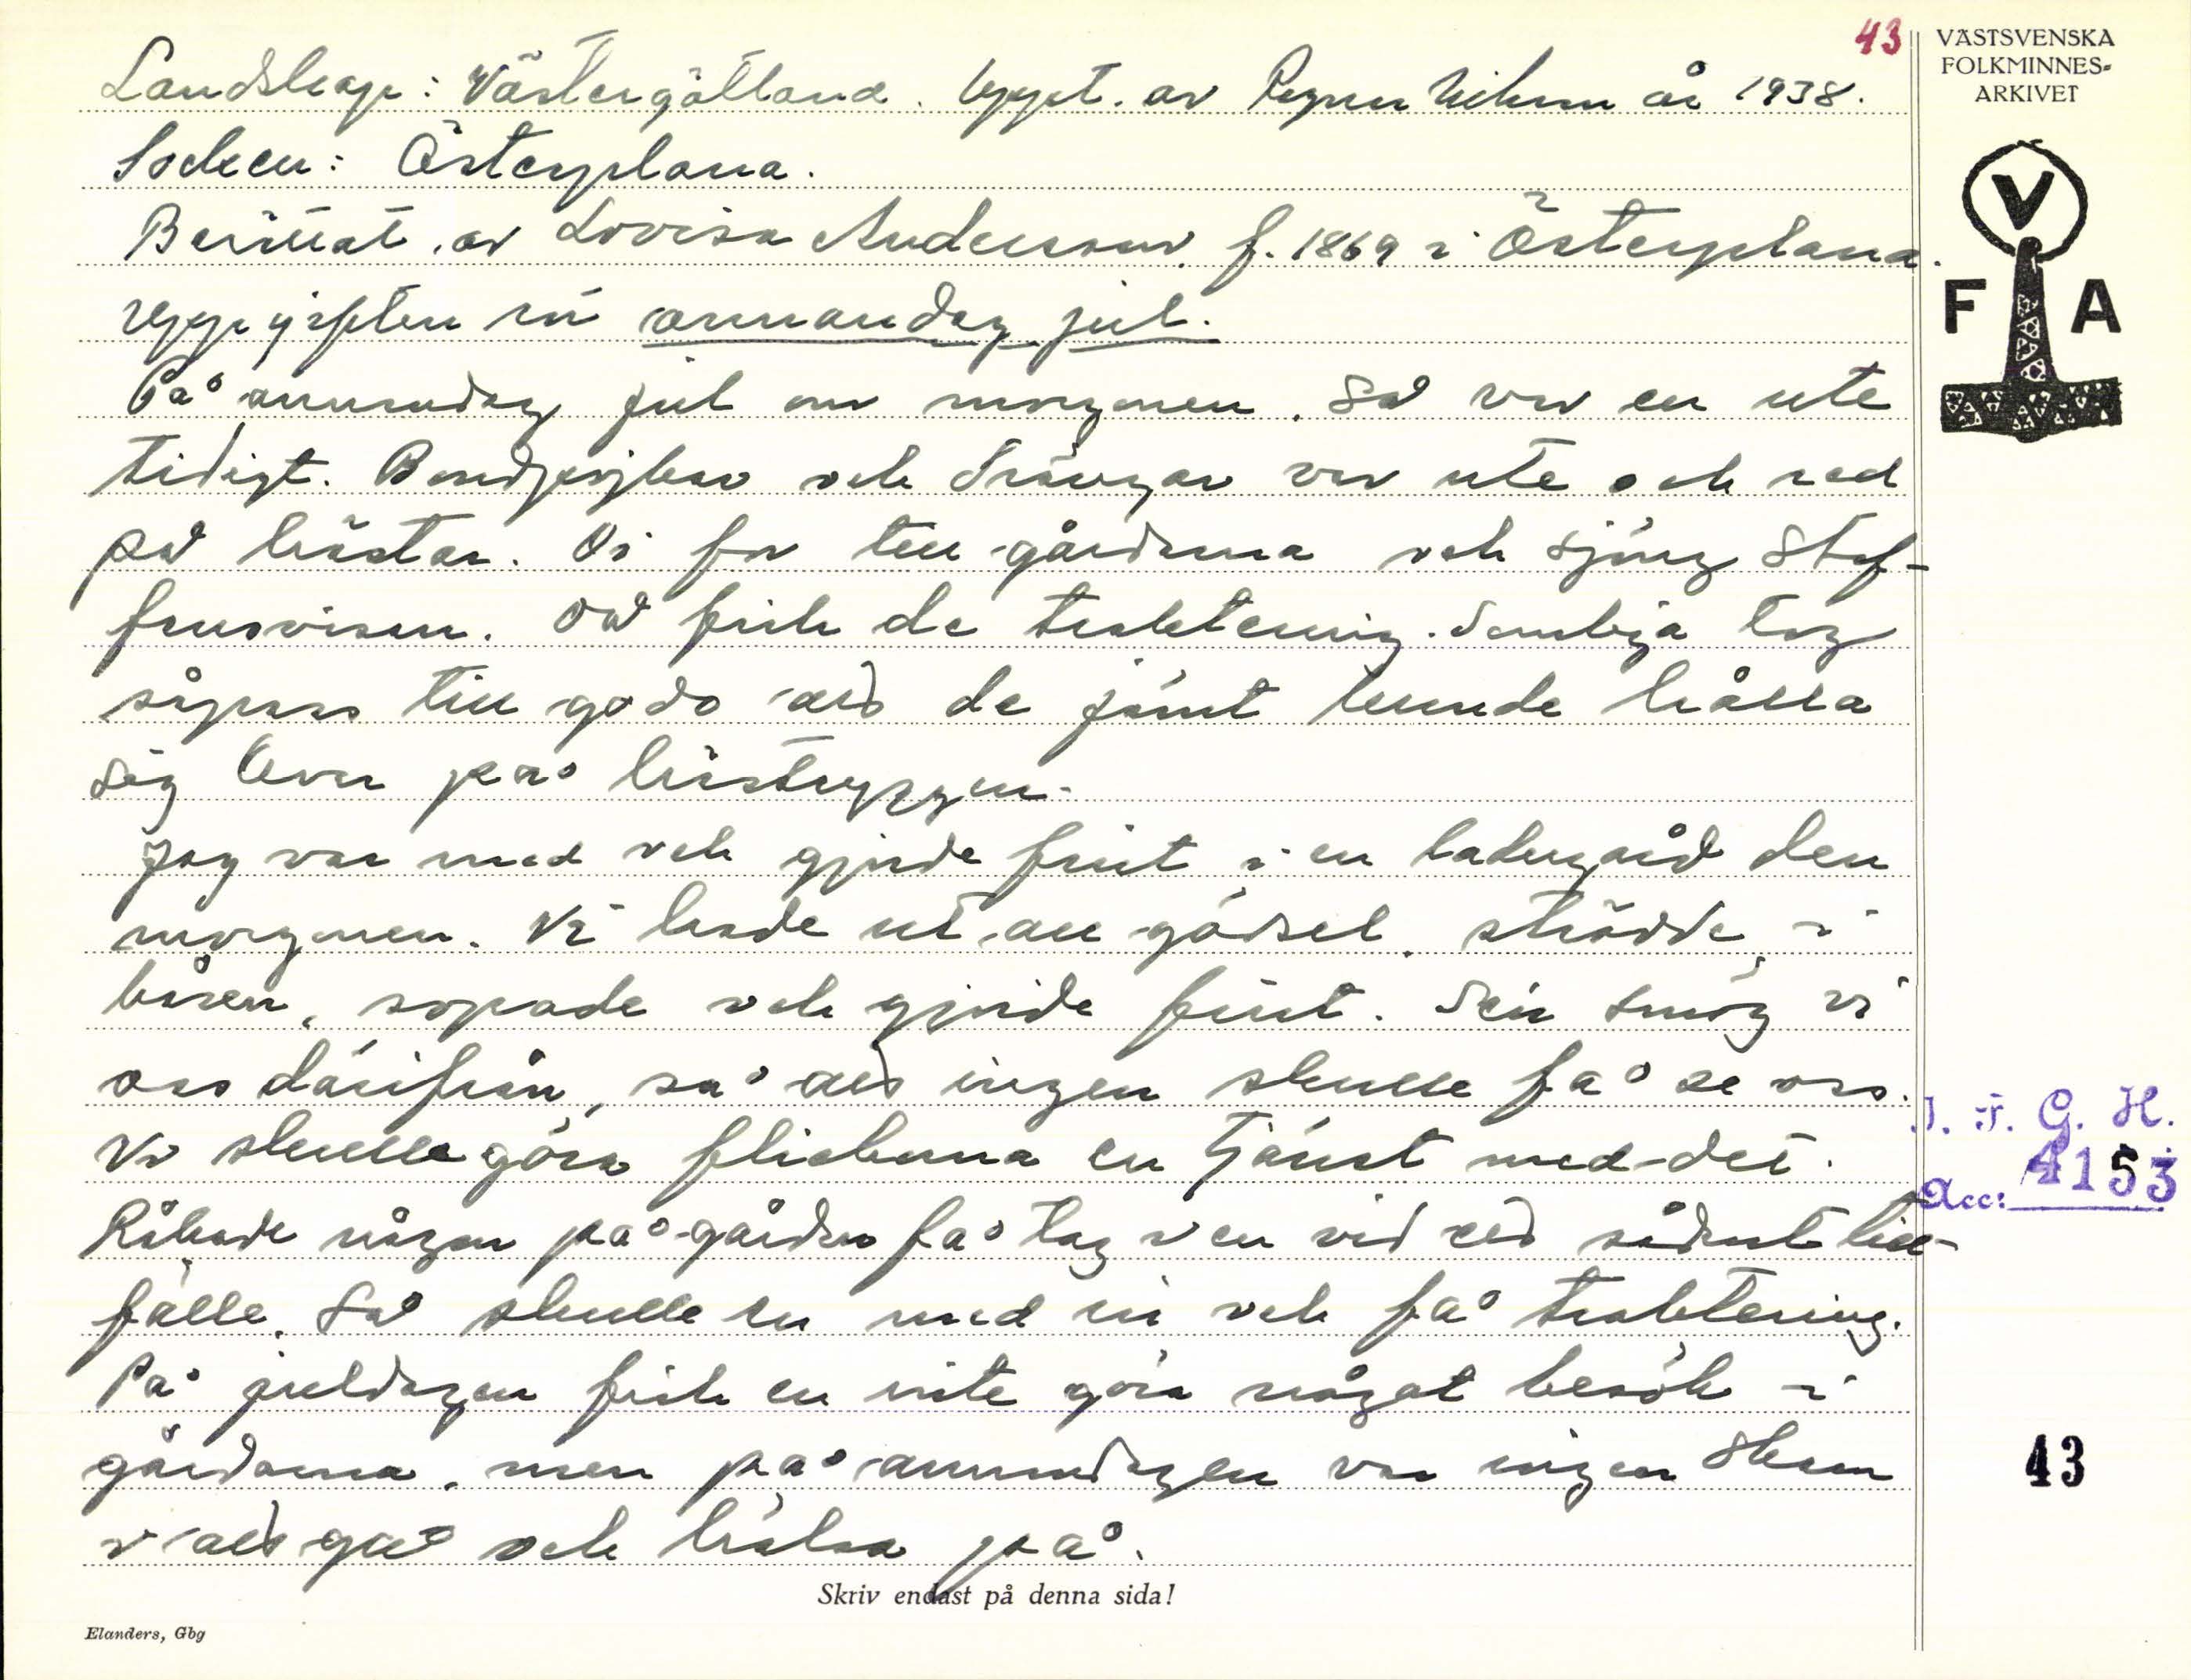 43
VÄSTSVENSKA
FOLKMINNES-
ARKIVET
V
F A
Landskap: Västergötland. Uppt. av Ragnar Nilsson år 1938.
Socken: Österplana.
Berättat av Lovisa Andersson, f. 1869 i Österplana.
Uppgiften rör annandag jul.
På annandag jul om morgonen, så var en ute
tidigt. Bondpojkar och drängar var ute och red
på hästar. Di for till gårdarna och sjöng Staf-
fansvisan. Då fick de traktering. Somliga tog
såpass till godo att de jämt kunde hålla
sig kvar på hästryggen.
Jag var med och gjorde fint i en ladugård den
morgonen. Vi hade ut all gödsel, strödde i
båsen, sopade och gjorde fint. Sen smög vi
oss därifrån, så att ingen skulle få se oss.
Vi skulle göra flickorna en tjänst med det.
Råkade någon på gården få tag i en vid ett sådant till-
fälle, så skulle en med in och få traktering.
På juldagen fick en inte göra något besök i
gårdarna, men på annandagen var ingen skam
i att gå och hälsa på.
I. F. G. H.
Acc: 4153
43
Skriv endast på denna sida!
Elanders, Gbg